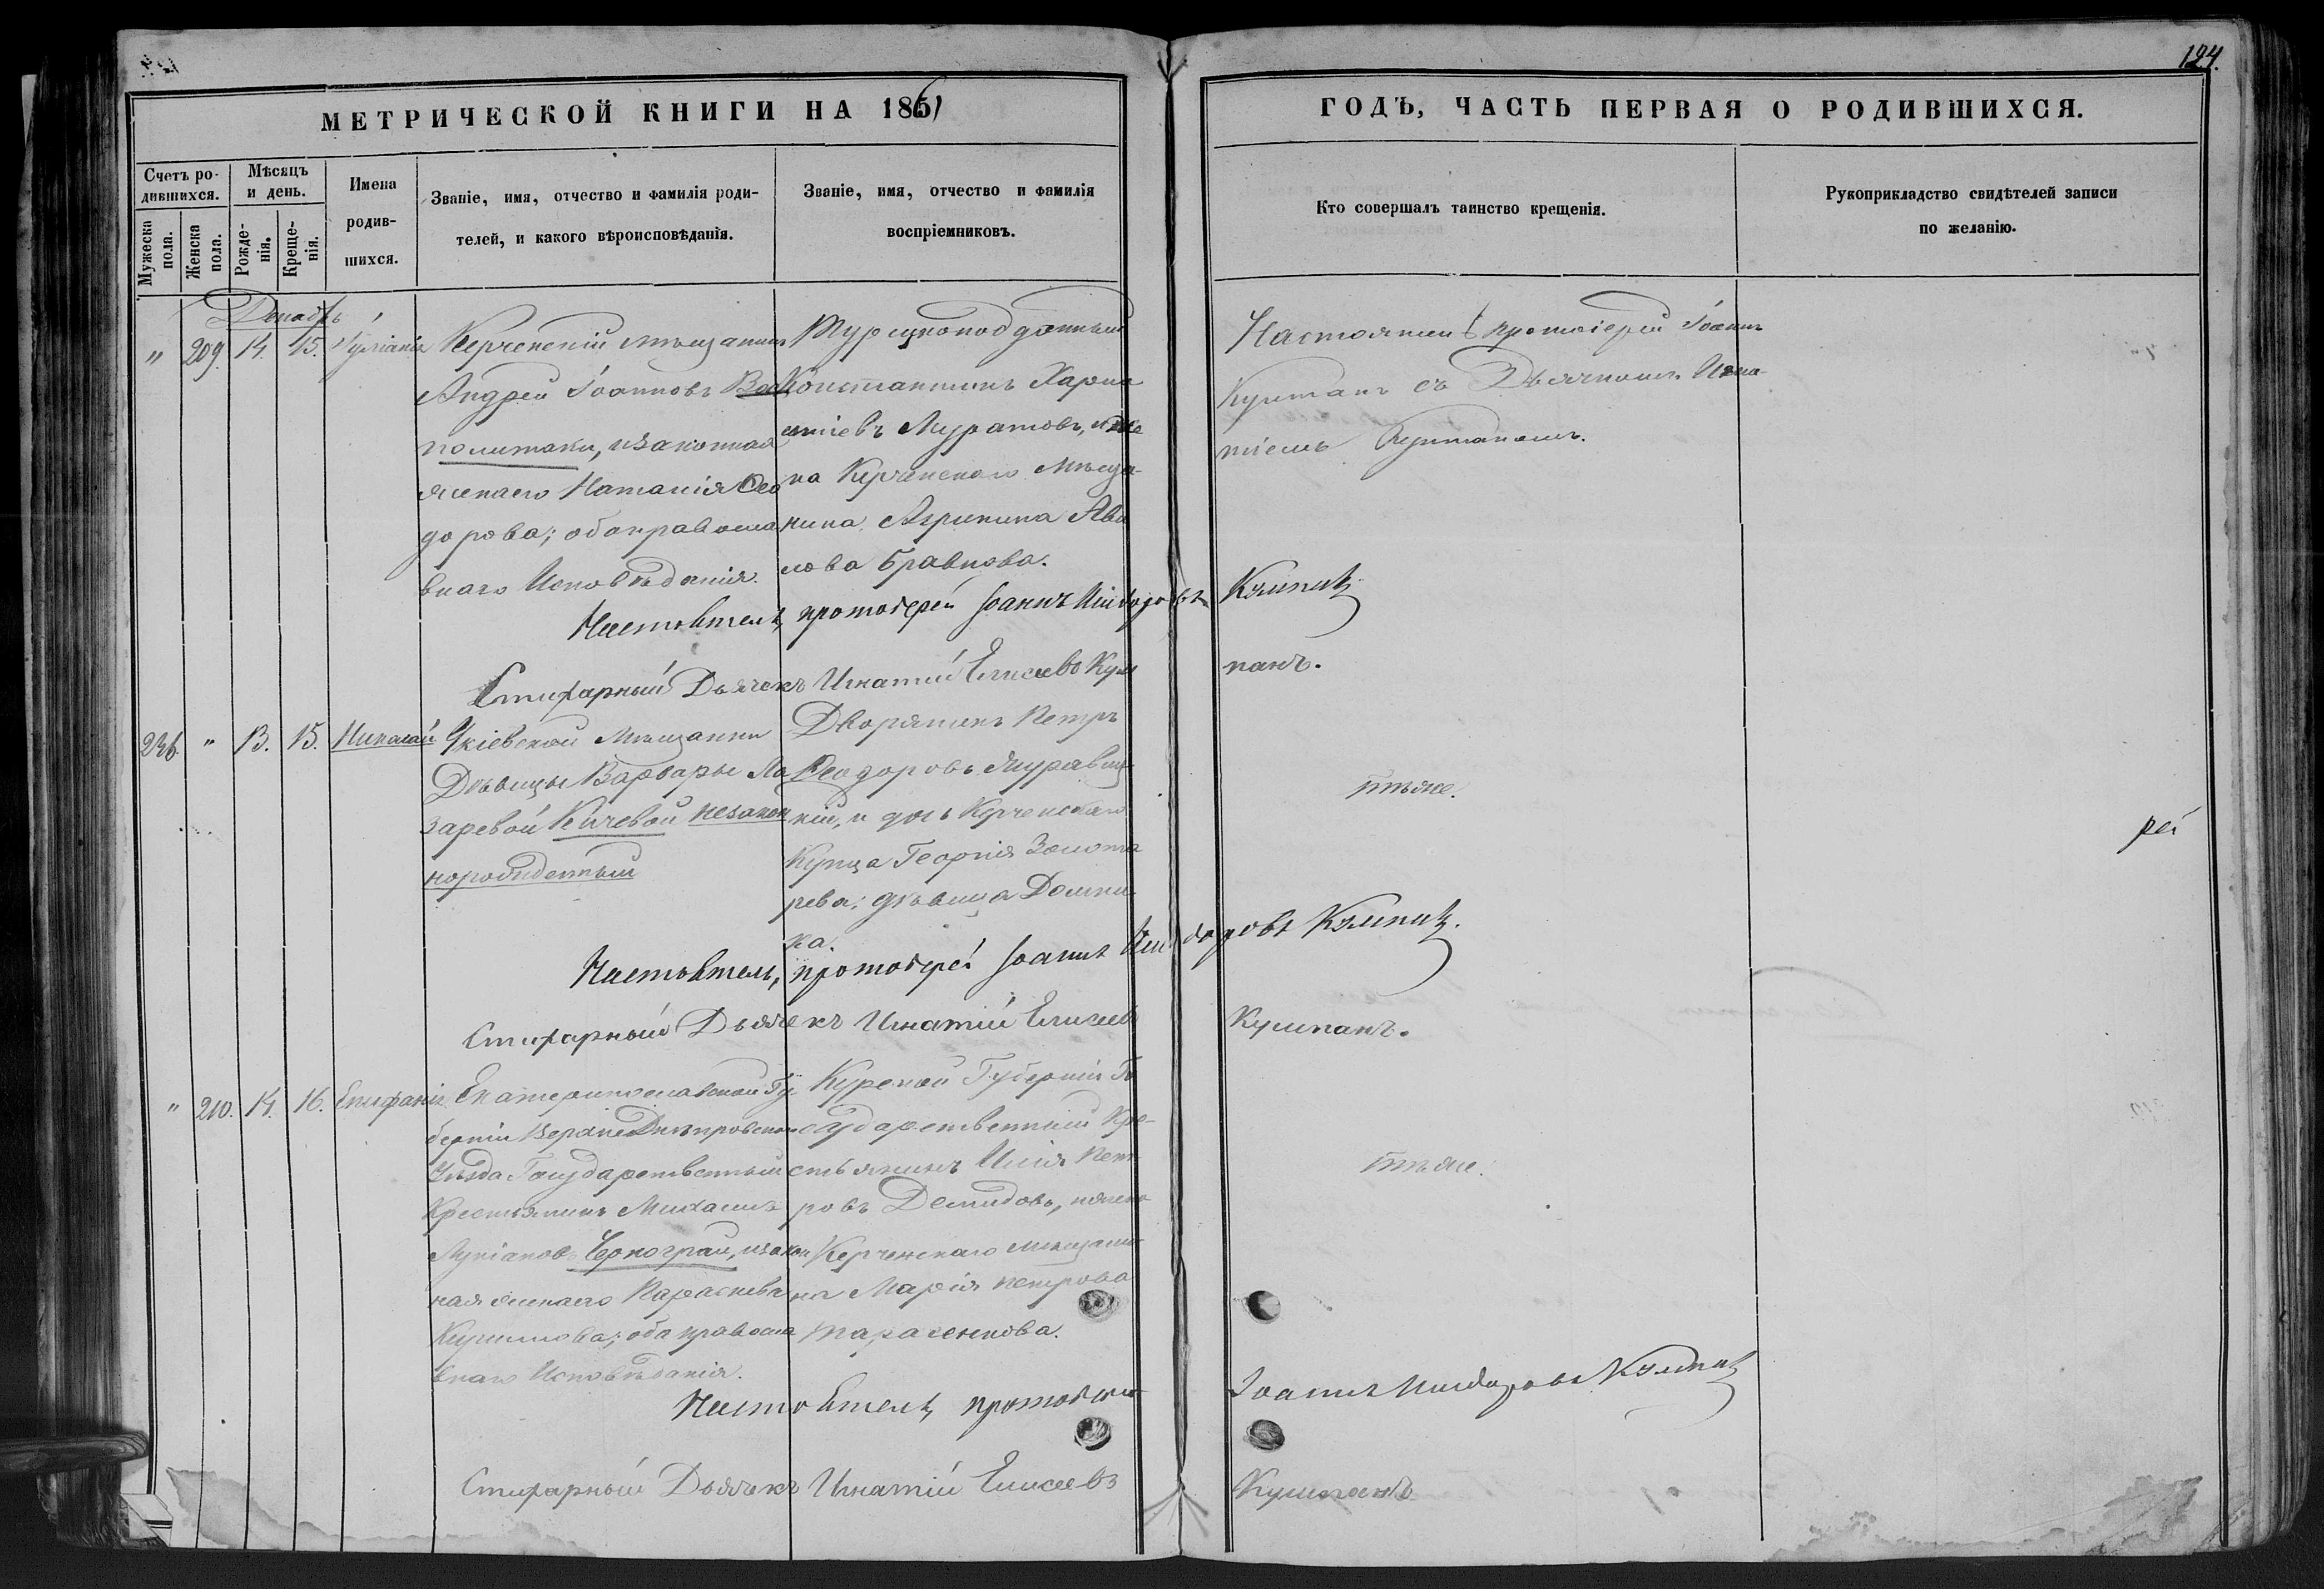 124.
МЕТРИЧЕСКОЙ КНИГИ НА 1861
ГОДЪ, ЧАСТЬ ПЕРВАЯ О РОДИВШИХСЯ.
Счетъ ро-
дившихся.
Мужеска
пола.
Женска
пола.
Мѣсяцъ
и день.
Рожде-
нія.
Креще-
нія.
Имена
родив-
шихся.
Званіе, имя, отчество и фамилія роди-
телей, и какого вѣроисповѣданія.
Званіе, имя, отчество и фамилія
воспріемниковъ.
Кто совершалъ таинство крещенія.
Рукоприкладство свидѣтелей записи
по желанію.
Декабрь
" 209. 14. 15. Іуліанія
Керченскій мѣщанинъ
Андрей Іоанновъ
политаки, и законная
жена его Наталія Ѳео
дорова; оба правосла
внаго Исповѣданія.
Турецкоподданный
Константинъ Харла
мпіевъ Муратовъ, и же
на Керченскаго Мѣща-
нина Агрипина
лова Бравкова.
Протоіерей Іоаннъ
съ Дьячкомъ Игна-
тіемъ
Настоятель, протоіерей Іоаннъ
Стихарный Дьячекъ Игнатій Елисеевъ
панъ.
236. " 13. 15. Николай
Мѣщанки
Дѣвицы Варвары Ла
заревой Кичевой незакон
норожденный
Дворянинъ Петръ
Ѳеодоровъ Журавиц-
кій, и дочь Керченскаго
Купца Георгія Золота
рева; дѣвица Домни
ка.
тѣже.
рей
Настоятель, протоіерей Іоаннъ
Стихарный Дьячекъ Игнатій Елисеевъ
" 210. 14. 16. Епифанія
Екатеринославской Гу
берніи Верхнеднѣпровскаго
Уѣзда Государственный
Крестьянинъ Михаилъ
Лукіановъ Чернограй, и закон
ная жена его Параскева
Кирилова; оба правосла
внаго Исповѣданія.
Курской Губерніи Го
сударственный Кре-
стьянинъ Илія Пет
ровъ Демидовъ, и жена
Керченскаго мѣщани
на Марія Петрова
Тарасенкова.
тѣже.
Настоятель, протоіерей
Іоаннъ
Стихарный Дьячекъ Игнатій Елисеевъ